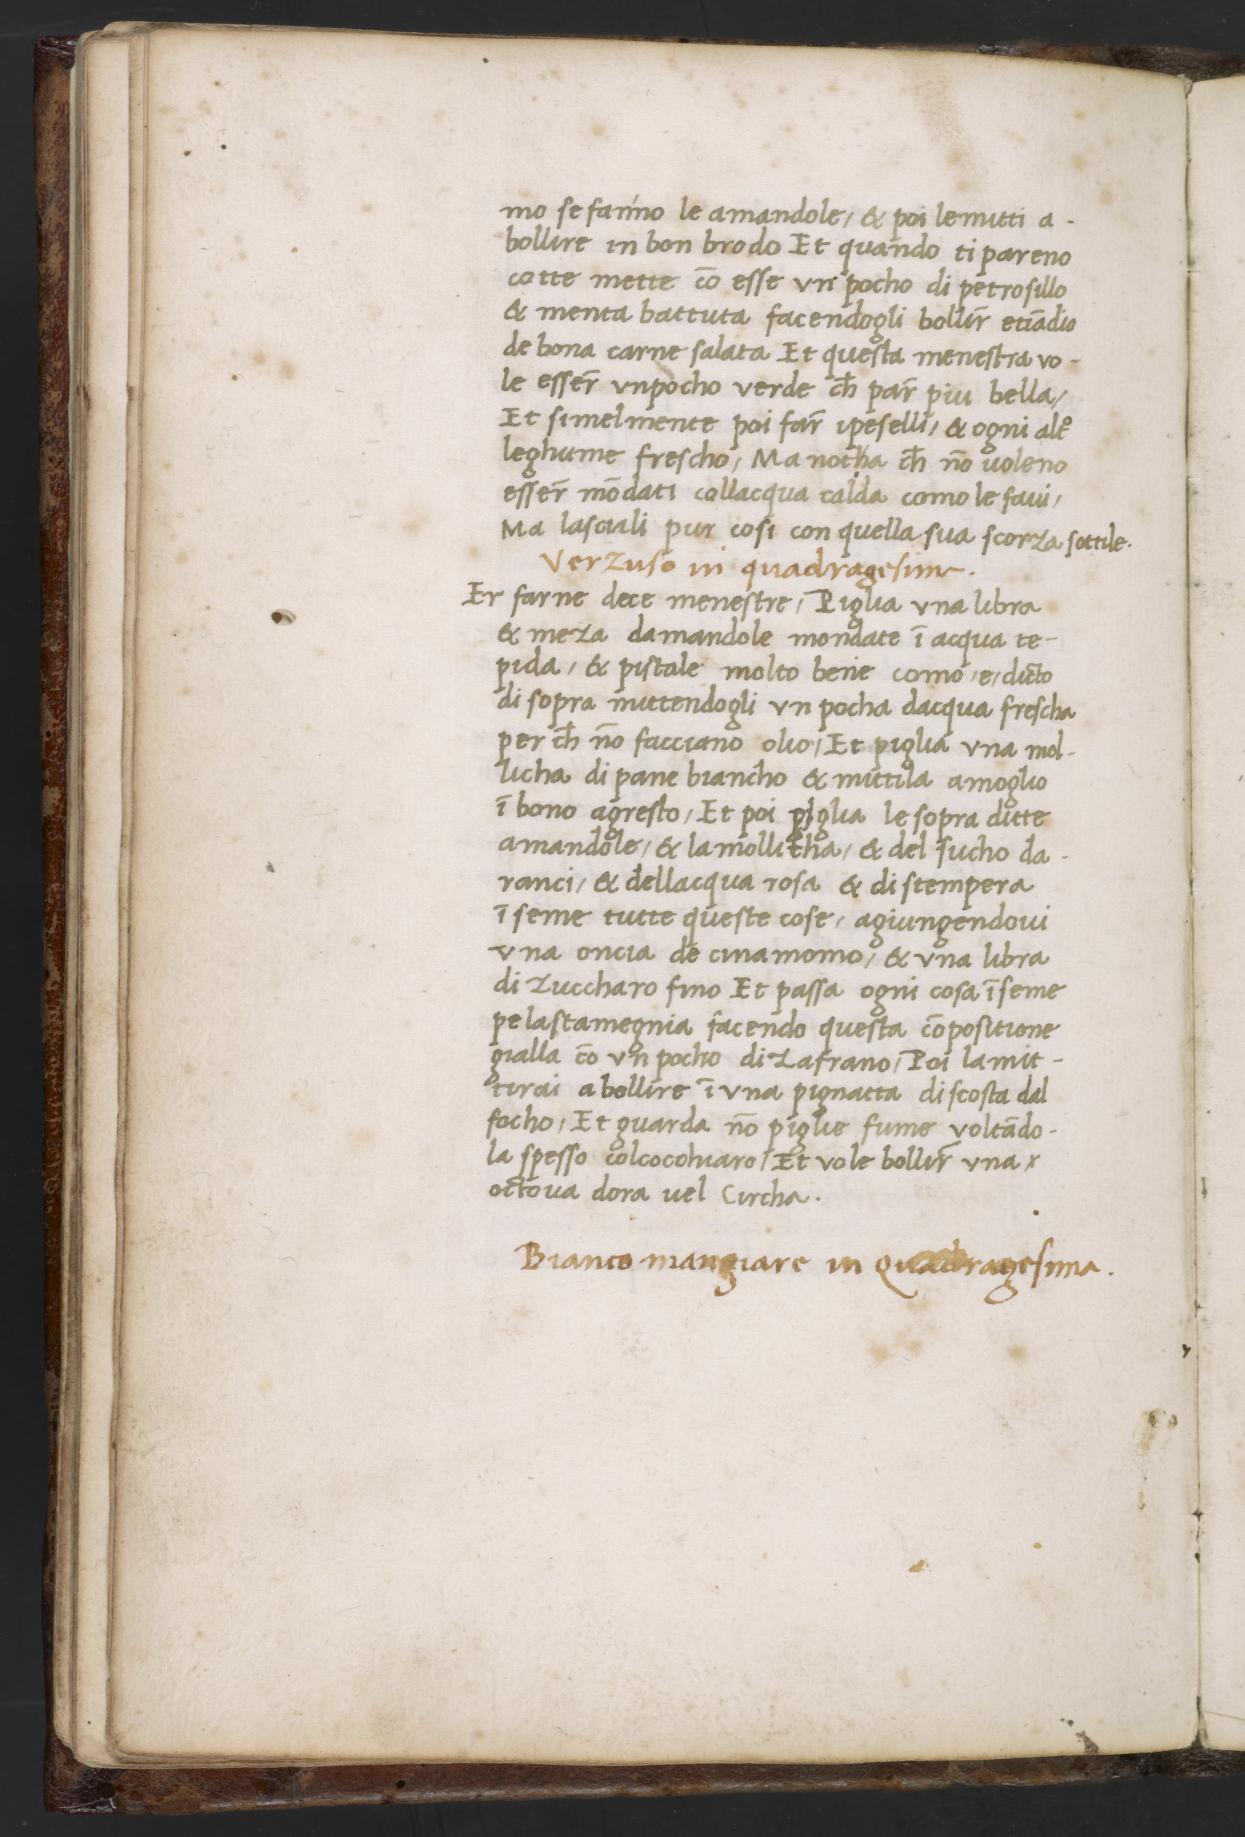 mo se fanno le amandole, & poi le mitti a -
bollire in bon brodo Et quando ti pareno
cotte mette cō esse vn pocho di petrosillo
& menta battuta facendogli bollir̄ etiādio
de bona carne salata Et questa menestra vo -
le esser̄ vn pocho verde ch̄ par̄ piu bella,
Et simelmente poi far̄ i peselli, & ogni altº
leghume frescho, Ma notha ch̄ nō uoleno
esser̄ mōdati collacqua calda como le faui,
Ma lasciali pur cosi con quella sua scorza sottile.
Verzuso in quadragesima.
Er farne dece menestre, Piglia vna libra
& meza damandole mondate ī acqua te-
pida, & pistale molto bene como, e, dicto
di sopra mittendogli vn pocha dacqua frescha
per ch̄ nō facciano olio, Et piglia vna mol-
licha di pane biancho & mittila amoglio
ī bono agresto, Et poi piglia le sopra ditte
amandole, & la mollicha, & del sucho da -
ranci, & dellacqua rosa & distempera
ī seme tutte queste cose, agiungendoui
vna oncia de cinamomo, & vna libra
di zuccharo fino Et passa ogni cosa ī seme
pe la stamegnia facendo questa cōpositione
gialla cō vn pocho di zafrano, Poi la mit -
tirai a bollire ī vna pignatta discosta dal
focho, Et guarda nō piglie fume voltādo-
la spesso col cocohiaro, Et vole bollir̄ vna
octoua dora uel Circha.
Bianco mangiare in Quadragesima.